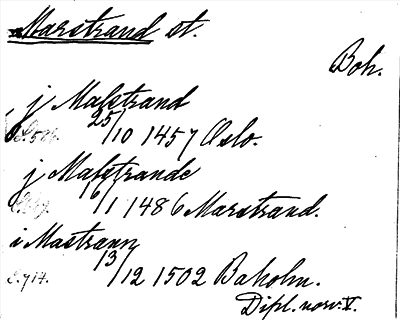 Marstrand st.
Boh.
j Mafstrand
25/10 1457 Oslo.
j Mafstrande
16/1 1486 Marstrand.
i Mastraan
13/12 1502 Baholm.
S. 714.
Dipl. norv. V.